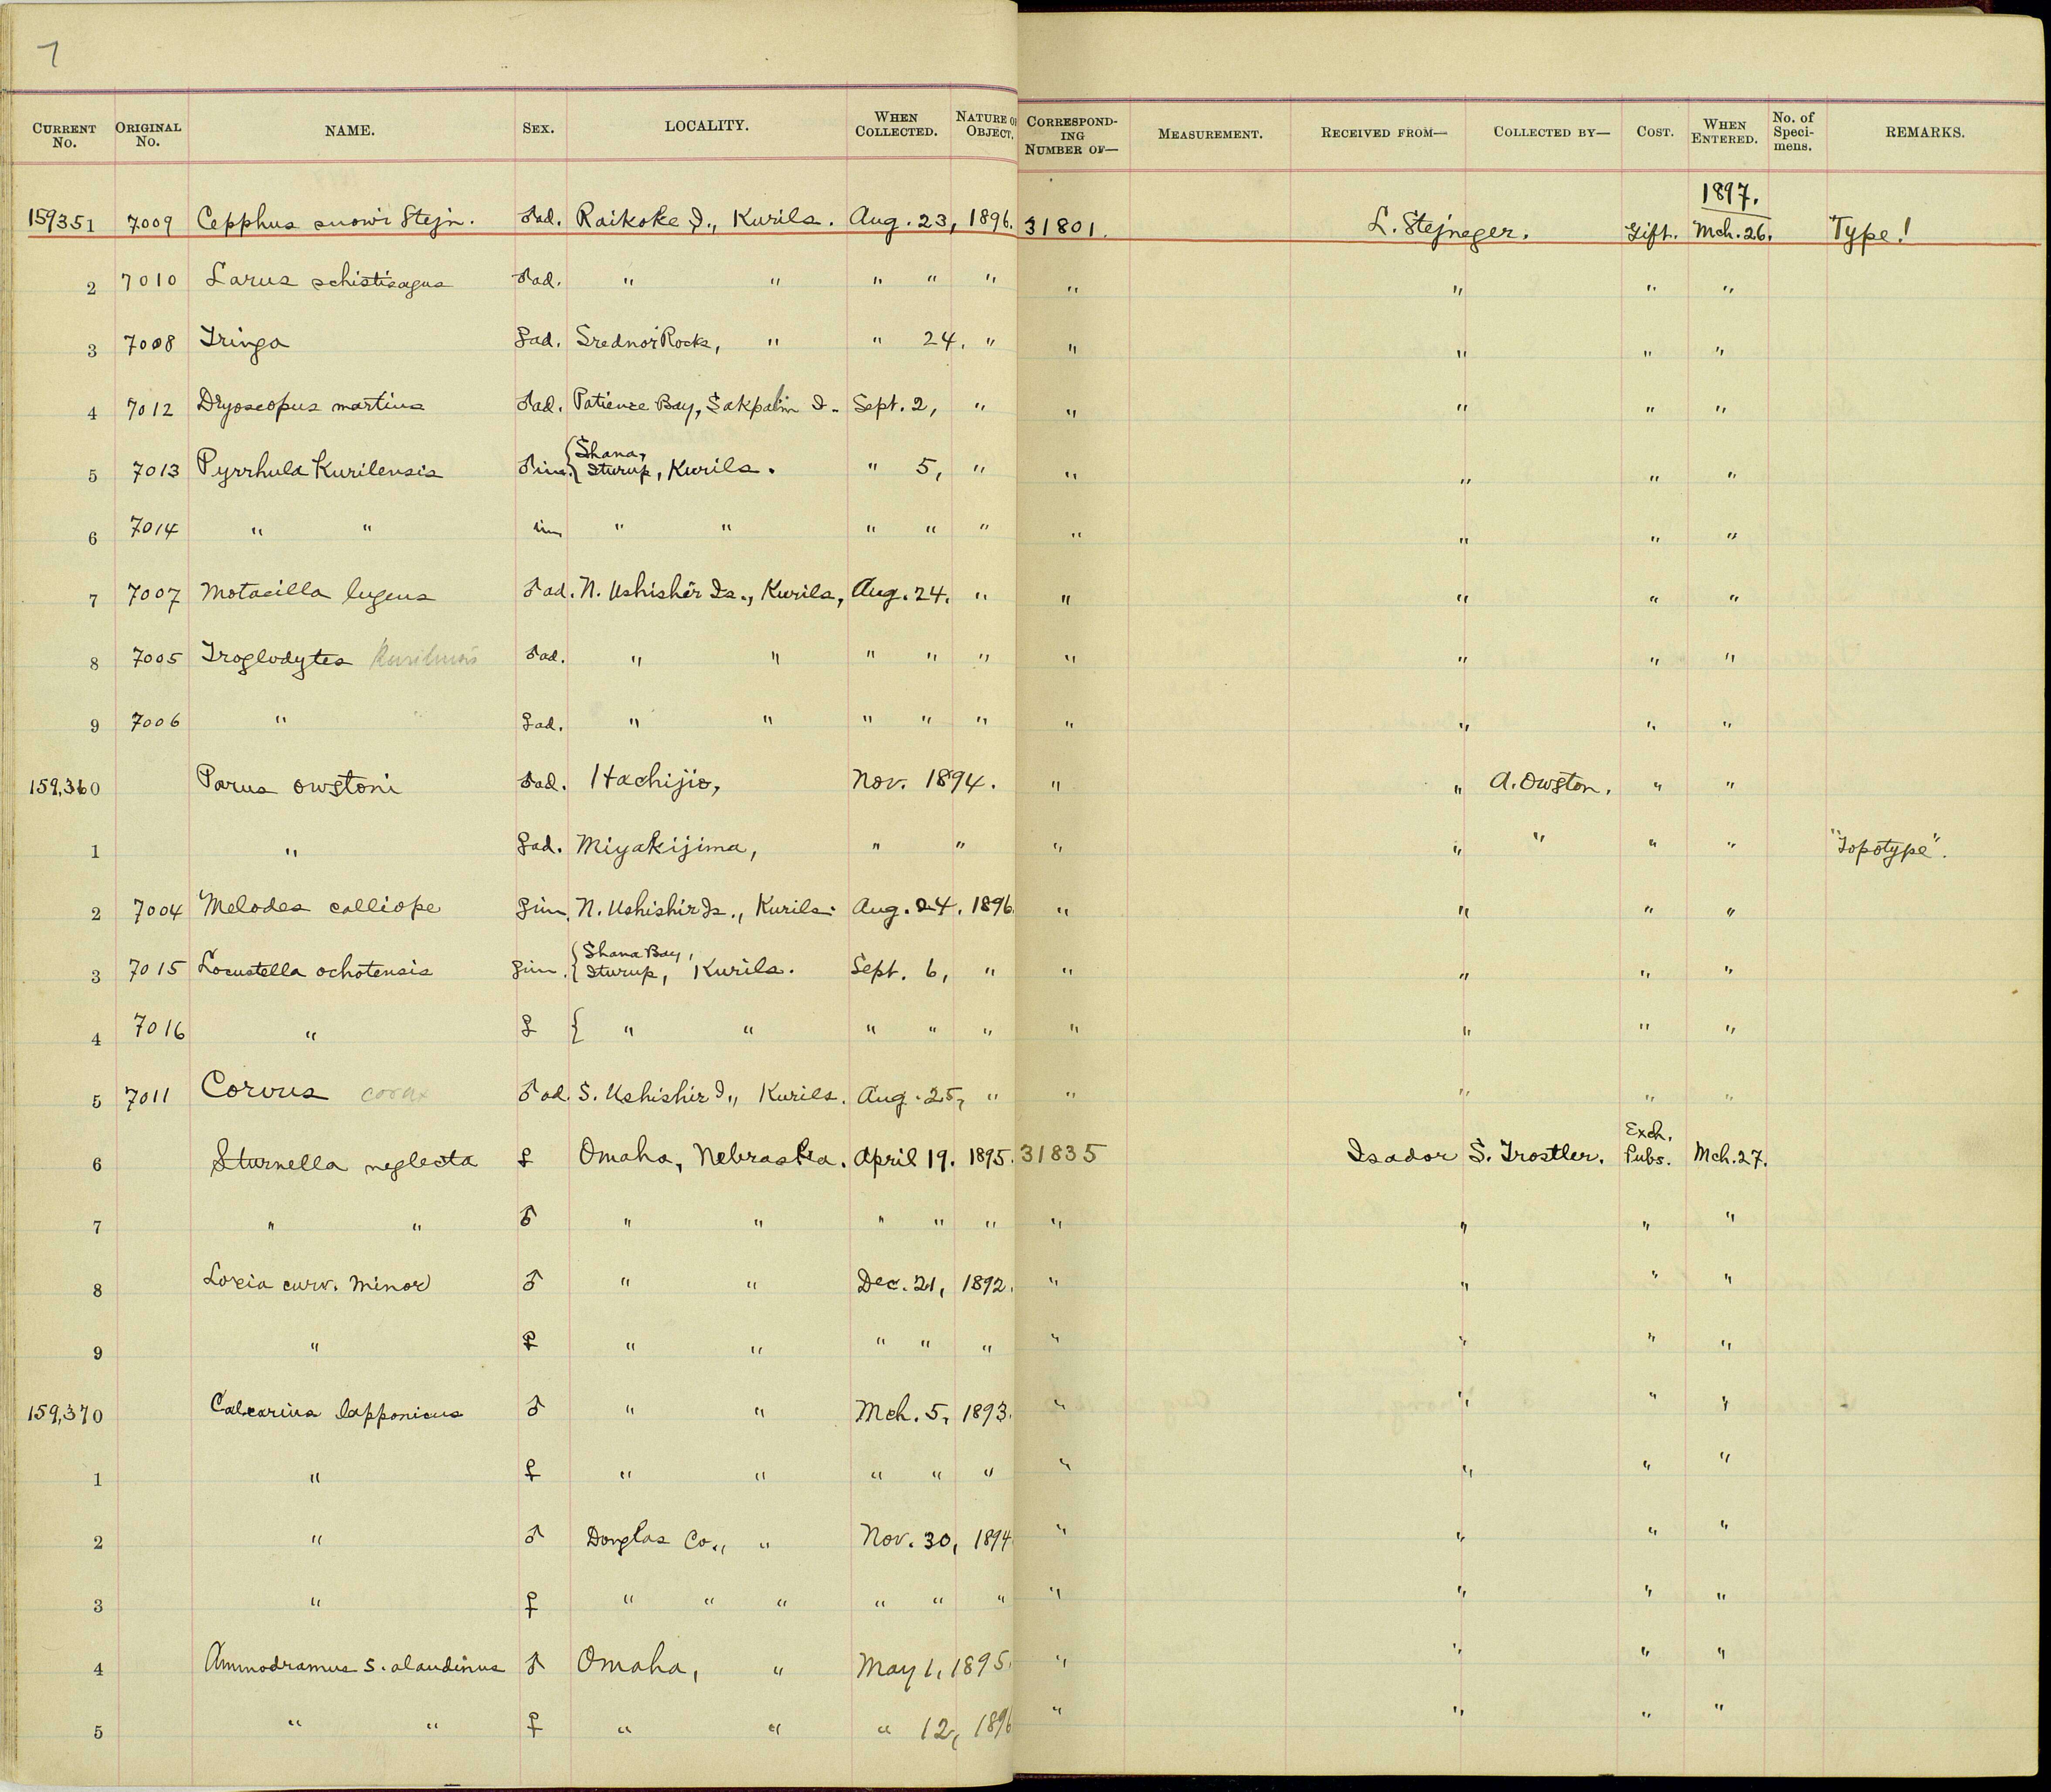 7
CURRENT No. ORIGINAL No. NAME. SEX. LOCALITY. WHEN COLLECTED. NATURE OF OBJECT. CORRESPONDING NUMBER OF— MEASUREMENT. RECEIVED FROM— COLLECTED BY— COST. WHEN ENTERED. No. of Specimens. REMARKS.
1897.
159351 7009 Cepphus snowi Stejn. ♂ad. Raikoke I., Kurils. Aug. 23, 1896. 31801. L. Stejneger. Gift. Mch. 26. Type!
2 7010 Larus schistisagus ♂ad. " " " " " " " " "
3 7008 Tringa ♀ad. Srednoi Rocks, " " 24. " " " " "
4 7012 Dryoscopus martius ♂ad. Patience Bay, Sakhalin I. Sept. 2, " " " " "
5 7013 Pyrrhula Kurilensis ♂im. { Shana, Iturup, Kurils. " 5, " " " " "
6 7014 " " im " " " " " " " " "
7 7007 Motacilla lugens ♂ad. N. Ushishir Is., Kurils, Aug. 24. " " " " "
8 7005 Troglodytes Kurilensis ♂ad. " " " " " " " " "
9 7006 " ♀ad. " " " " " " " " "
159,360 Parus owstoni ♂ad. Hachijio, Nov. 1894. " " A. Owston. " "
1 " ♀ad. Miyakijima, " " " " " " " "Topotype".
2 7004 Melodes calliope ♀im. N. Ushishir Is., Kurils. Aug. 24. 1896. " " " "
3 7015 Locustella ochotensis ♀im. { Shana Bay, Iturup, Kurils. Sept. 6, " " " " "
4 7016 " ♀ { " " " " " " " " "
5 7011 Corvus corax ♂ad. S. Ushishir I., Kurils. Aug. 25, " " " " "
6 Sturnella neglecta ♀ Omaha, Nebraska. April 19. 1895. 31835 Isador S. Trostler. Exch. Pubs. Mch. 27.
7 " " ♂ " " " " " " " " "
8 Loxia curv. minor ♂ " " Dec. 21, 1892. " " " "
9 " ♀ " " " " " " " " "
159,370 Calcarius lapponicus ♂ " " Mch. 5, 1893. " " " "
1 " ♀ " " " " " " " " "
2 " ♂ Douglas Co., " Nov. 30, 1894 " " " "
3 " ♀ " " " " " " " " " "
4 Ammodramus S. alaudinus ♂ Omaha, " May 1, 1895. " " " "
5 " " ♀ " " " 12, 1896 " " " "